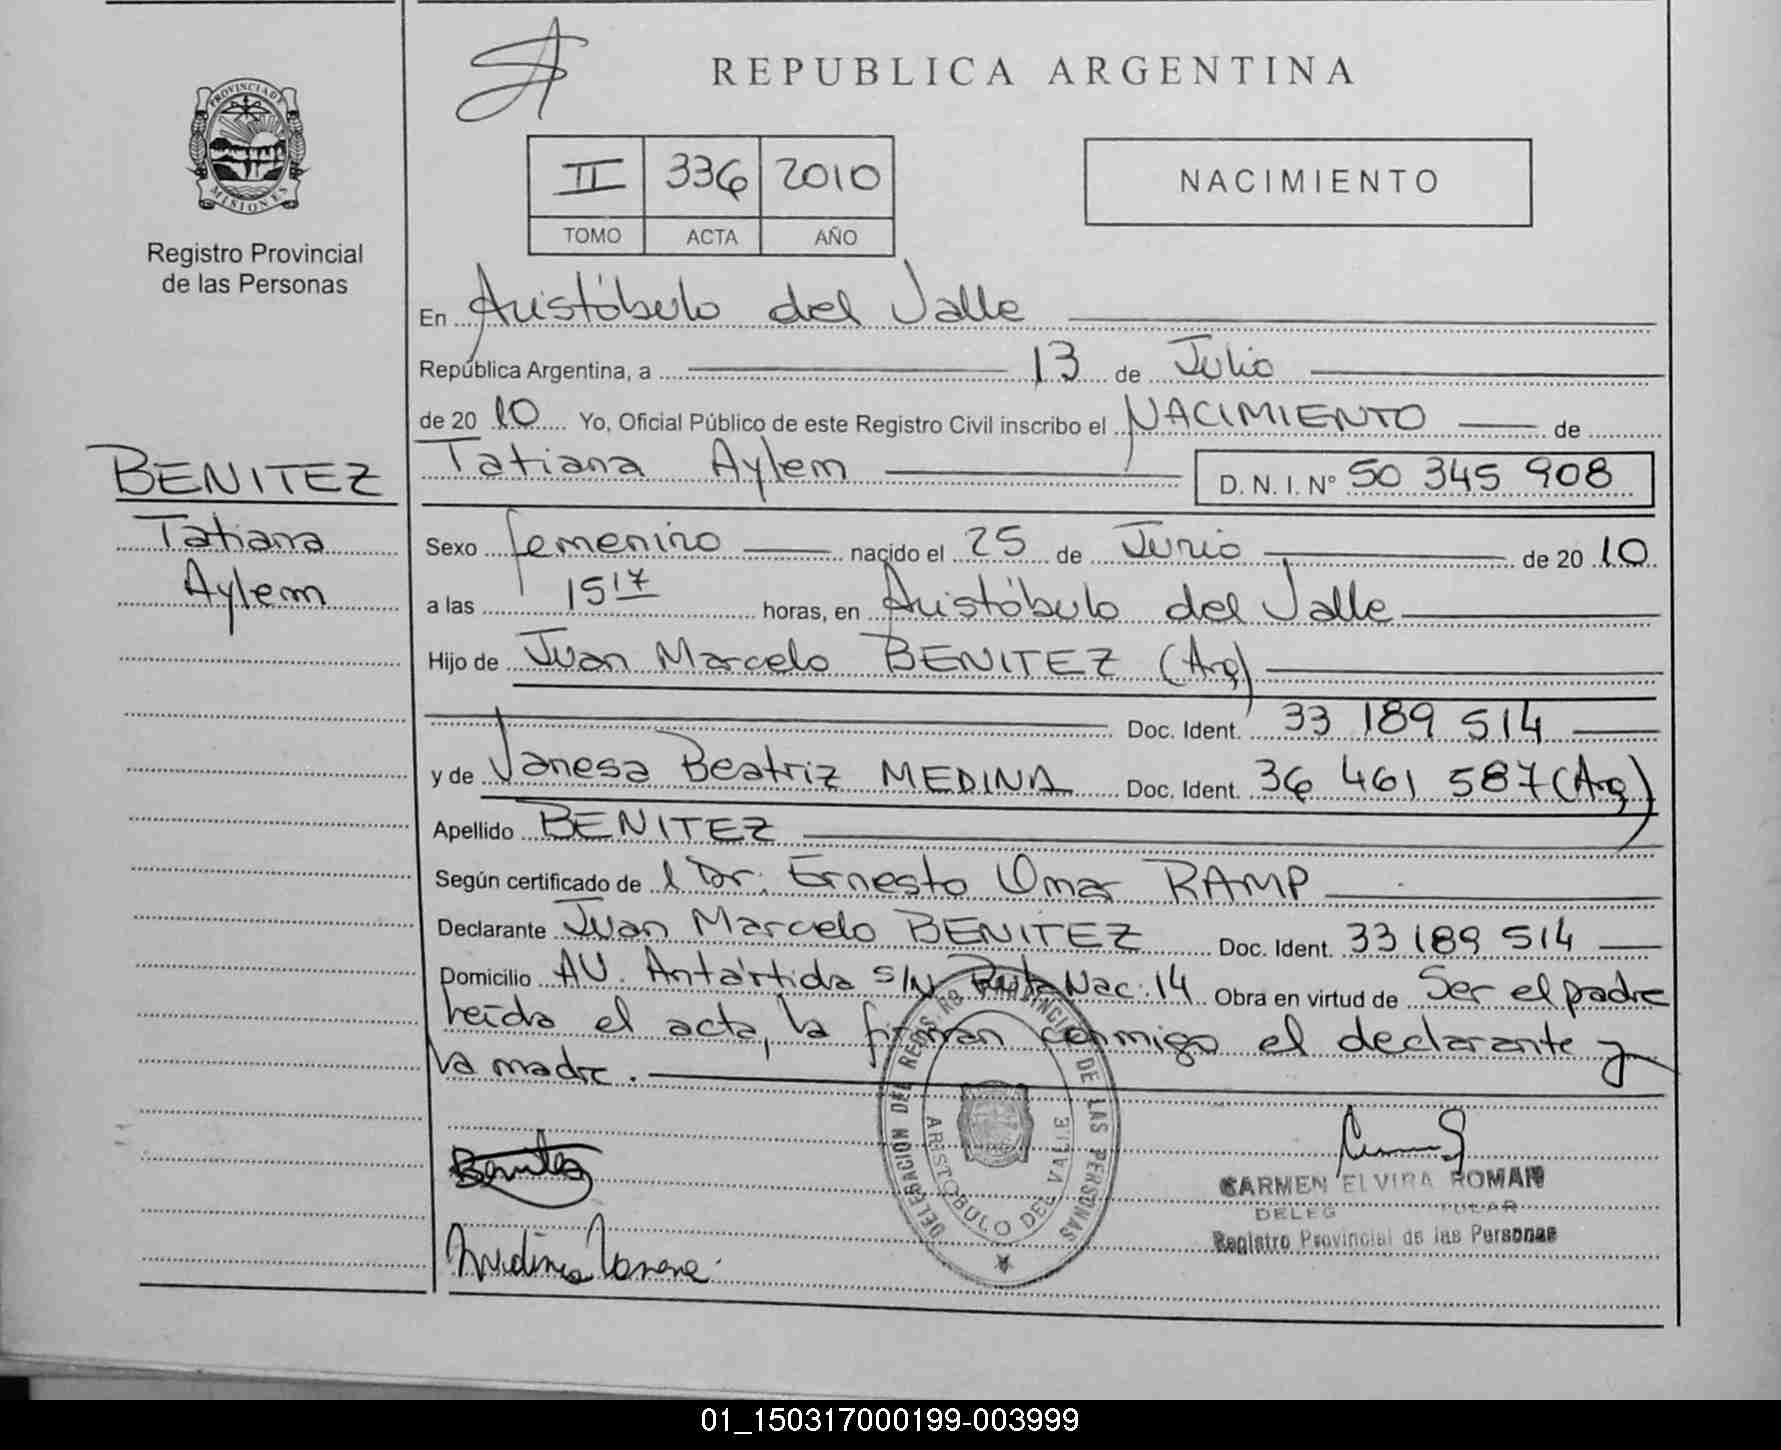 REPUBLICA ARGENTINA
PROVINCIA DE MISIONES
Registro Provincial
de las Personas
II 336 2010
TOMO ACTA AÑO
NACIMIENTO
En Aristóbulo del Valle
República Argentina, a 13 de Julio
de 20 10 Yo, Oficial Público de este Registro Civil inscribo el NACIMIENTO de
Tatiana Aylem D. N. I. Nº 50 345 908
BENITEZ
Tatiana
Aylem
Sexo femenino nacido el 25 de Junio de 20 10
a las 15 17 horas, en Aristóbulo del Valle
Hijo de Juan Marcelo BENITEZ (Arg)
Doc. Ident. 33 189 514
y de Vanesa Beatriz MEDINA Doc. Ident. 36 461 587 (Arg)
Apellido BENITEZ
Según certificado de l Dr. Ernesto Omar RAMP
Declarante Juan Marcelo BENITEZ Doc. Ident. 33 189 514
Domicilio AV. Antártida S/N Ruta Nac. 14 Obra en virtud de Ser el padre
leída el acta, la firman conmigo el declarante y
la madre.
DELEGACION DEL REGISTRO PROVINCIAL DE LAS PERSONAS
ARISTOBULO DEL VALLE
Benitez
Medina Vanesa
CARMEN ELVIRA ROMAN
DELEG TULAR
Registro Provincial de las Personas
01_150317000199-003999